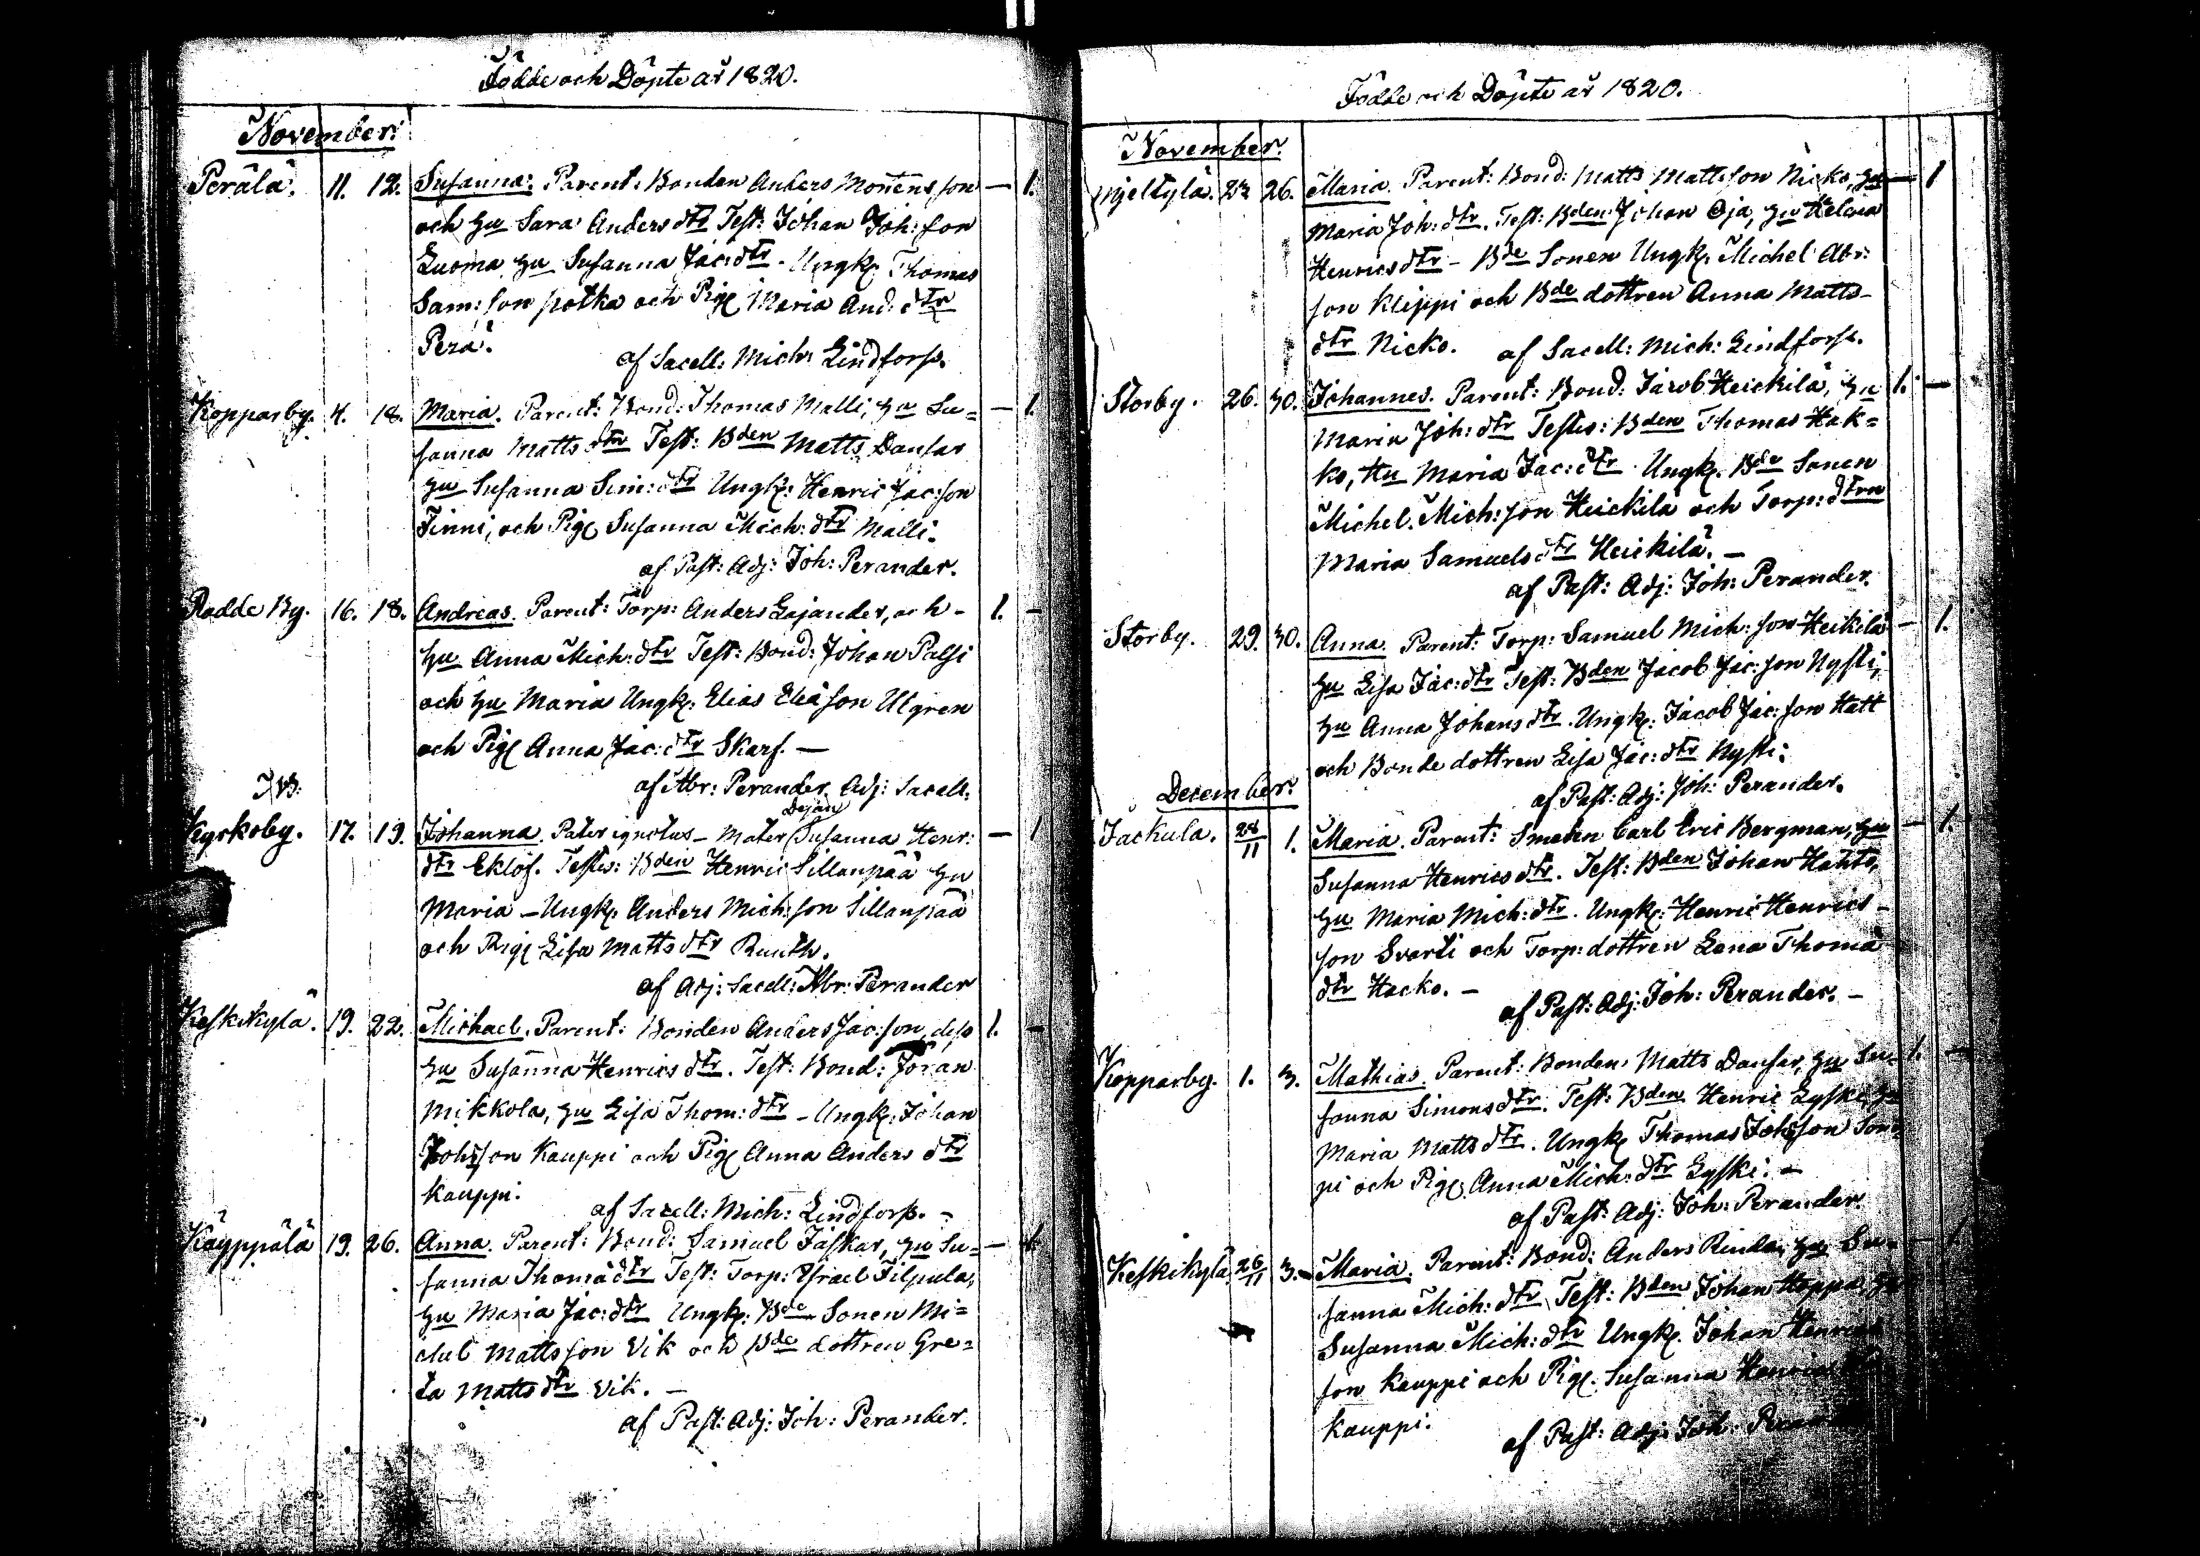 Födde och Döpte år 1820.
November:
Perälä. 11. 12. Susanna: Parent: Bonden Anders Mårtens son — 1.
och Hu Sara Anders dtr Test: Johan Joh: son
Luoma, Hu Susanna Jac: dtr. Ungk. Thomas
Sam: son potka och Pig. Maria And: dtr
Perä.
af Sacell: Mich: Lindforss.
Kopparby. 4. 18. Maria. Parent: Bond: Thomas Malli, Hu Su= — 1.
sanna Matts dtr Test: Bden Matts Dansar
Hu Susanna Sim: dtr Ungk: Henric Jac: son
Finni, och Pig. Susanna Mich: dtr Malli.
af Past: Adj: Joh: Perander.
Radde By. 16. 18. Andreas. Parent: Torp: Anders Lajander, och - 1. —
Hu Anna Mich: dtr Test: Bond: Johan Palsi
och Hu Maria Ungk: Elias Elia son Ulgren
och Pig. Anna Jac: dtr Skarf. —
af Abr: Perander Adj: Sacell:
Kyrkoby. 17. 19. Johanna. Pater ignotus — Mater Susanna Henr: — 1
Dejan
dtr Eklöf. Testes: Bden Henric Sillanpää Hu
Maria — Ungk. Anders Mich: son Sillanpää
och Pig. Lisa Matts dtr Ruuth.
af Adj: Sacell: Abr: Perander
Keskikylä. 19. 22. Michael. Parent: Bonden Anders Jac: son, dess 1. —
Hu Susanna Henrics dtr. Test: Bond: Jöran
Mikkola, Hu Lisa Thom: dtr — Ungk. Johan
Johsson Kauppi och Pig. Anna Anders dtr
Kauppi.
af Sacell: Mich: Lindforss. —
Käyppälä 19. 26. Anna. Parent: Bond: Samuel Jaskar, Hu Su= — 1.
sanna Thoma dtr Test: Torp: Israel Filpula,
Hu Maria Jac: dtr Ungk: Bde Sonen Mi=
chel Mattsson Vik och Bde dottren Gre=
ta Matts dtr Vik. —
af Past: Adj: Joh: Perander.
Födde och Döpte år 1820.
November.
Mjeltylä. 23. 26. Maria. Parent: Bond: Matts Mattsson Nicko, Hu — 1
Maria Joh: dtr. Test: Bden Johan Oja, Hu Helena
Henrics dtr — Bde Sonen Ungk. Michel Abr:
son Klippi och Bde dottren Anna Matts-
dtr Nicko. af Sacell: Mich: Lindforss.
Storby. 26. 30. Johannes. Parent: Bond: Jacob Heickilä, Hu 1. —
Maria Joh: dtr Testes: Bden Thomas Hak=
ko, Hu Maria Jac: dtr Ungk. Bde Sonen
Michel. Mich: son Heickilä och Torp: dtrn
Maria Samuels dtr Heickilä. —
af Past: Adj: Joh: Perander.
Storby. 29. 30. Anna. Parent: Torp: Samuel Mich: son Heikilä — 1.
Hu Lisa Jac: dtr Test: Bden Jacob Jac: son Nysti,
Hu Anna Johans dtr. Ungk: Jacob Jac: son Hatt
och Bonde dottren Lisa Jac: dtr Nysti.
af Past: Adj: Joh: Perander.
December.
Jackula. 28/11 1. Maria. Parent: Smeden Carl Eric Bergman, Hu — 1.
Susanna Henrics dtr. Test: Bden Johan Hahto,
Hu Maria Mich: dtr. Ungk: Henric Henrics —
son Svarti och Torp: dottren Lena Thoma
dtr Hacko. —
af Past: Adj: Joh: Perander. —
Kopparby. 1. 3. Mathias. Parent: Bonden Matts Dansar, Hu Su= 1. —
sanna Simons dtr. Test: Bden Henric Lyski, Hu
Maria Matts dtr. Ungk. Thomas Johsson
pi och Pig. Anna Mich: dtr Lyski. —
af Past: Adj: Joh: Perander.
Keskikylä 26/11 3. Maria. Parent: Bond: Anders Rinda, Hu Su= — 1.
sanna Mich: dtr Test: Bden Johan Hoppa, Hu
Susanna Mich: dtr Ungk. Johan Henrics
son Kauppi och Pig. Susanna Henrics
Kauppi.
af Past: Adj: Joh: